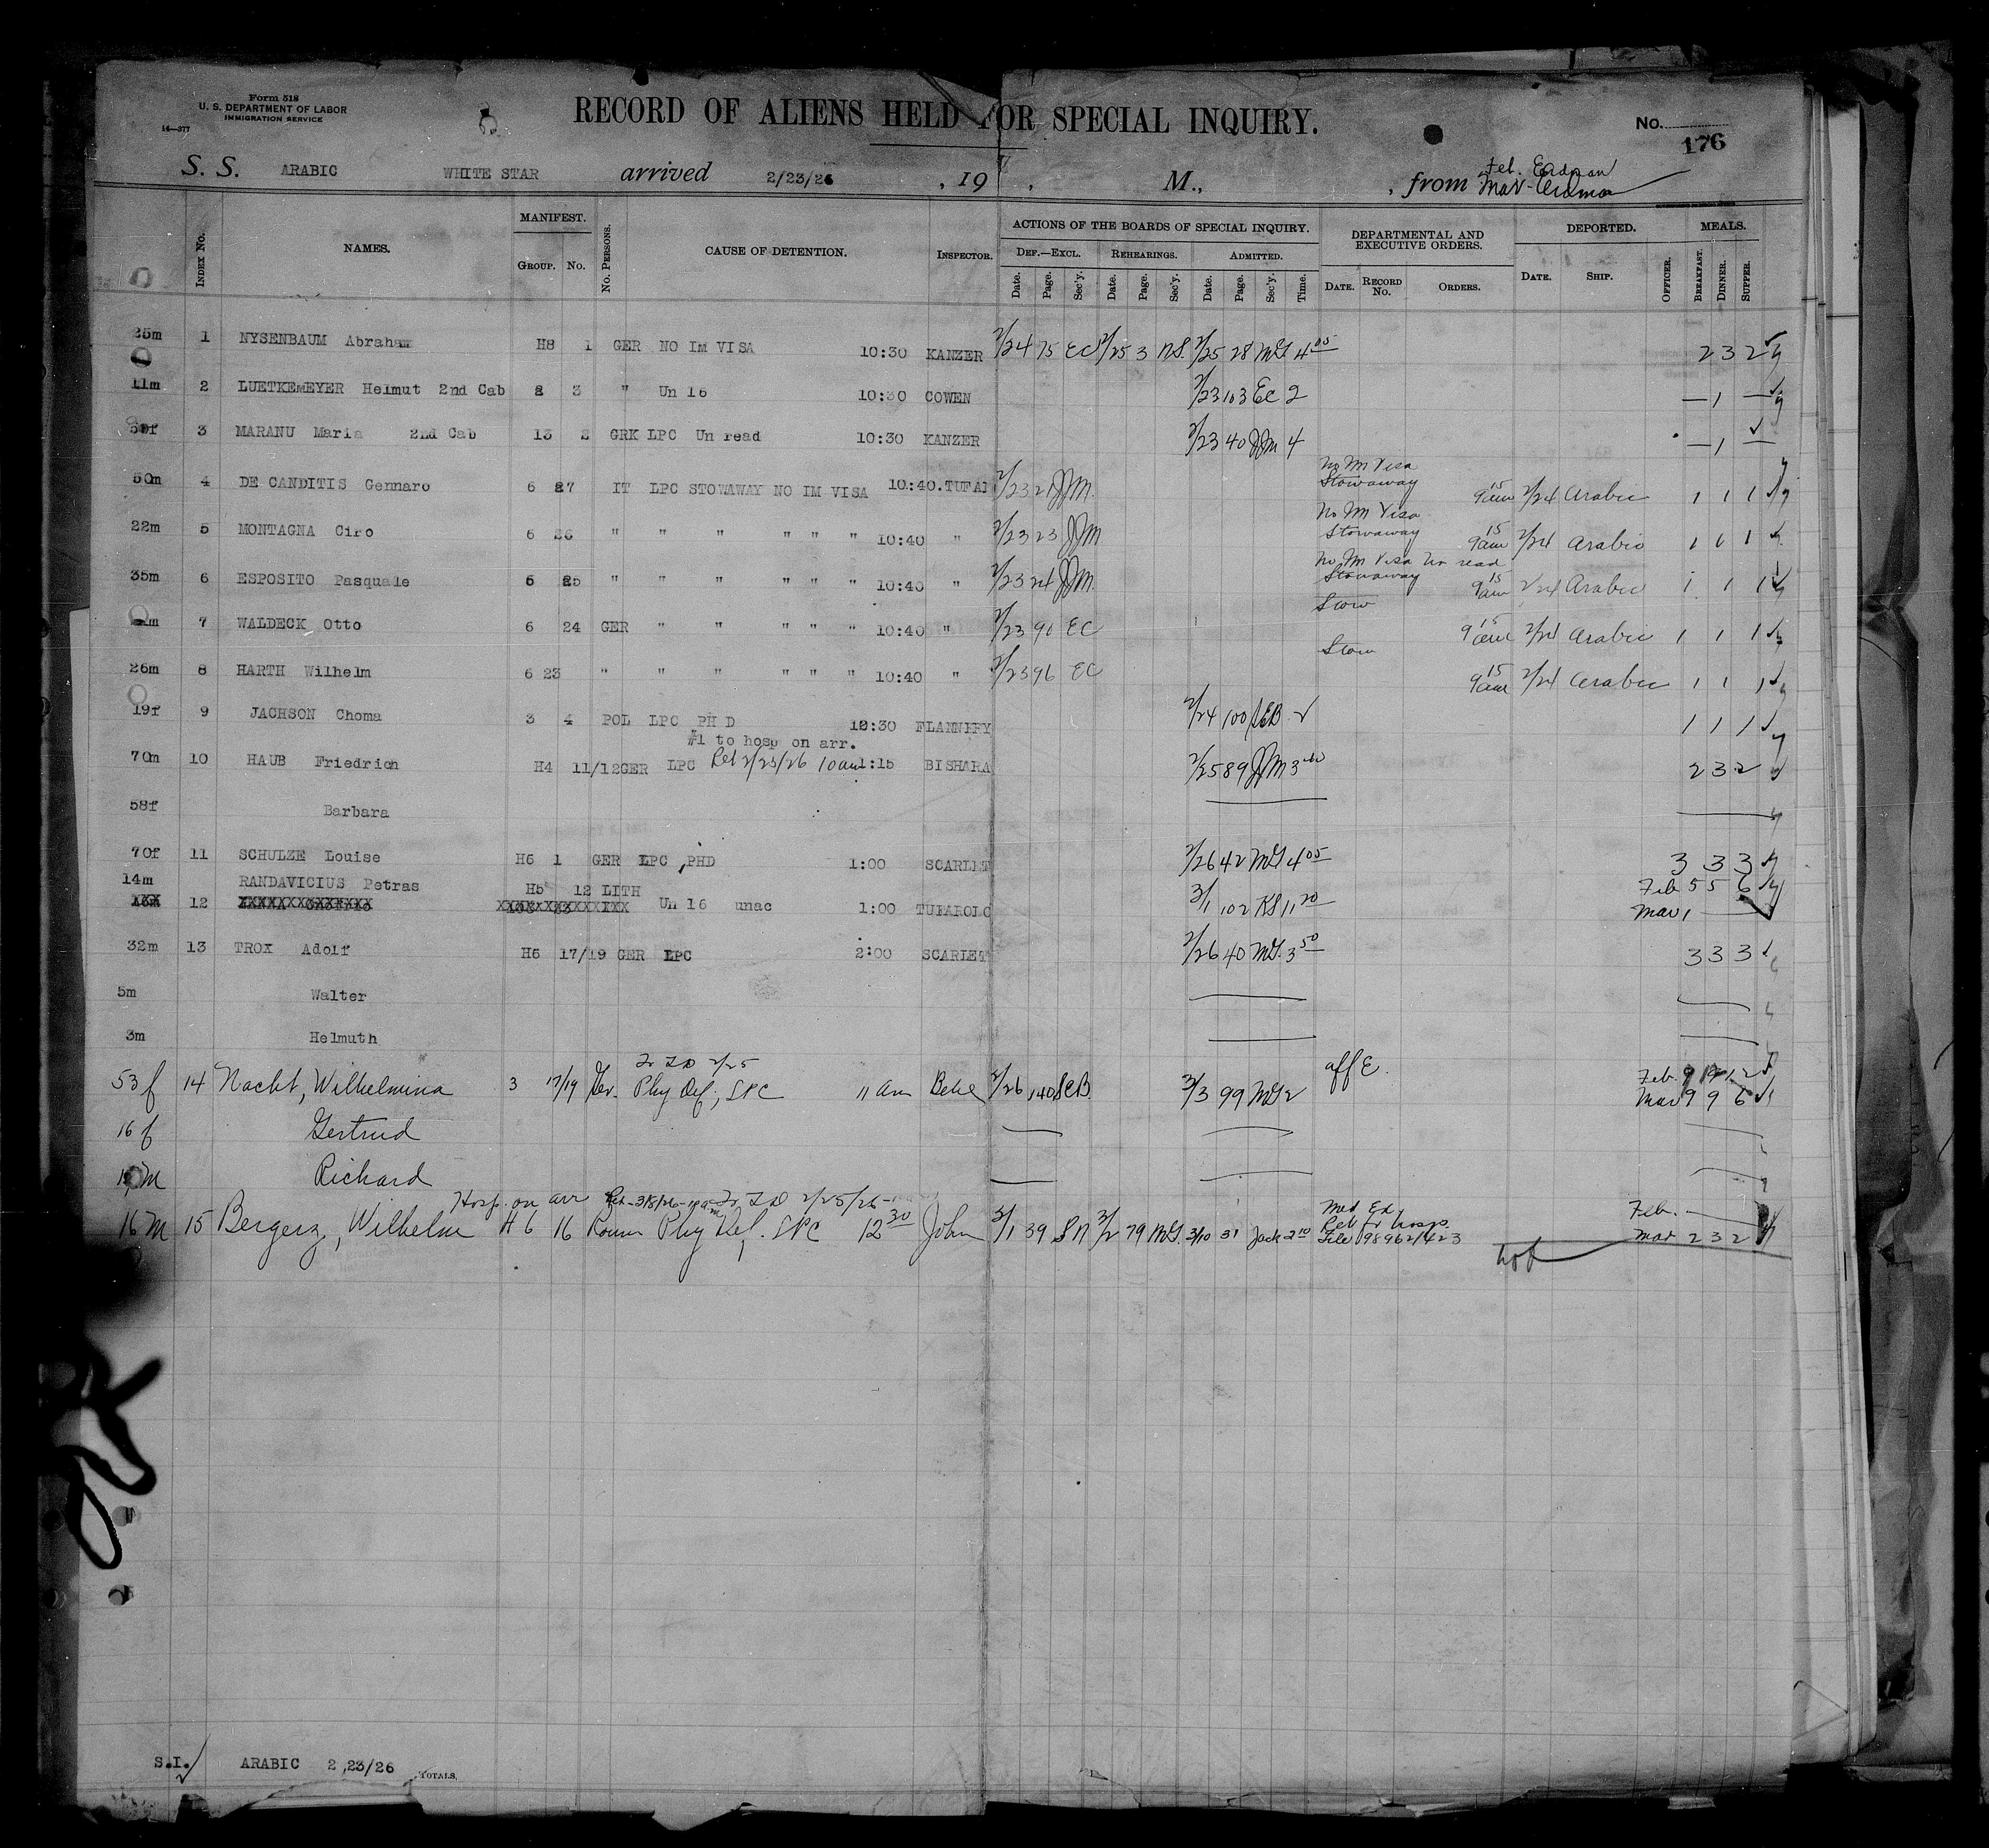 Form 518
U. S. DEPARTMENT OF LABOR
IMMIGRATION SERVICE
14—377
RECORD OF ALIENS HELD FOR SPECIAL INQUIRY.
No. 176
S. S. ARABIC WHITE STAR arrived 2/23/26 , 19 , M., , from Feb. Erdman
INDEX No. NAMES. MANIFEST. GROUP. No. No. PERSONS. CAUSE OF DETENTION. INSPECTOR. ACTIONS OF THE BOARDS OF SPECIAL INQUIRY. DEPARTMENTAL AND EXECUTIVE ORDERS. DEPORTED. MEALS.
DEF.—EXCL. REHEARINGS. ADMITTED.
Date. Page. Sec'y. Date. Page. Sec'y. Date. Page. Sec'y. Time. DATE. RECORD No. ORDERS. DATE. SHIP. OFFICER. BREAKFAST. DINNER. SUPPER.
25m 1 NYSENBAUM Abraham H8 1 GER NO IM VISA 10:30 KANZER 2/24 75 EC 2/25 3 NS. 2/25 28 MG 4 05 2 3 2
11m 2 LUETKEMEYER Helmut 2nd Cab 2 3 " Un 16 10:30 COWEN 2/23 103 EC 2 — 1 —
3 MARANU Maria 2nd Cab 13 2 GRK LPC Un read 10:30 KANZER 2/23 40 JJM 4 — 1 —
50m 4 DE CANDITIS Gennaro 6 27 IT LPC STOWAWAY NO IM VISA 10:40 TUFA 2/23 21 JJM. No Im Visa Stowaway 9 15 am 2/24 Arabic 1 1 1
22m 5 MONTAGNA Ciro 6 26 " " " " " " 10:40 " 2/23 23 JJM No Im Visa Stowaway 9 15 am 2/24 Arabic 1 1 1
35m 6 ESPOSITO Pasquale 6 25 " " " " " " 10:40 " 2/23 24 JJM. No Im Visa Un read Stowaway 9 15 am 2/24 Arabic 1 1 1
7 WALDECK Otto 6 24 GER " " " " " 10:40 " 2/23 90 EC Stow 9 15 am 2/24 Arabic 1 1 1
26m 8 HARTH Wilhelm 6 23 " " " " " " 10:40 " 2/23 96 EC Stow 9 15 am 2/24 Arabic 1 1 1
19f 9 JACHSON Choma 3 4 POL LPC PH D 10:30 FLANNERY 2/24 100 SEB 2 1 1 1
#1 to hosp on arr.
70m 10 HAUB Friedrich H4 11/12 GER LPC Rel 2/25/26 10am 1:15 BISHARA 2/25 89 JJM 3 2 3 2
58f Barbara
70f 11 SCHULZE Louise H6 1 GER LPC, PHD 1:00 SCARLET 2/26 42 MG 4 05 3 3 3
14m RANDAVICIUS Petras H5 12 LITH Feb 5 5 6
12 Un 16 unac 1:00 TUFAROLO 3/1 102 KS 11 20 Mar 1
32m 13 TROX Adolf H6 17/19 GER LPC 2:00 SCARLET 2/26 40 MG. 3 50 3 3 3
5m Walter
3m Helmuth
To ID 2/25
53 f 14 Nacht, Wilhelmina 3 17/19 Ger. Phy Def, LPC 11 am 2/26 140 SEB. 3/3 99 MG 2 aff E. Feb. 9 9 12
Mar 9 9 6
16 f Gertrud
M Richard
Hosp. on arr Rel-3/8/26- To ID 2/25/26
16 M 15 Bergerz, Wilhelm H 6 16 Roum Phy Def. LPC 12 30 John 3/1 39 SN 3/2 79 MG. 3/10 31 Jack 2 10 Med Ex, Reb fr hosp. File 98962/423 Feb. —
Mar 2 3 2
S.I. ARABIC 2,23/26 TOTALS,